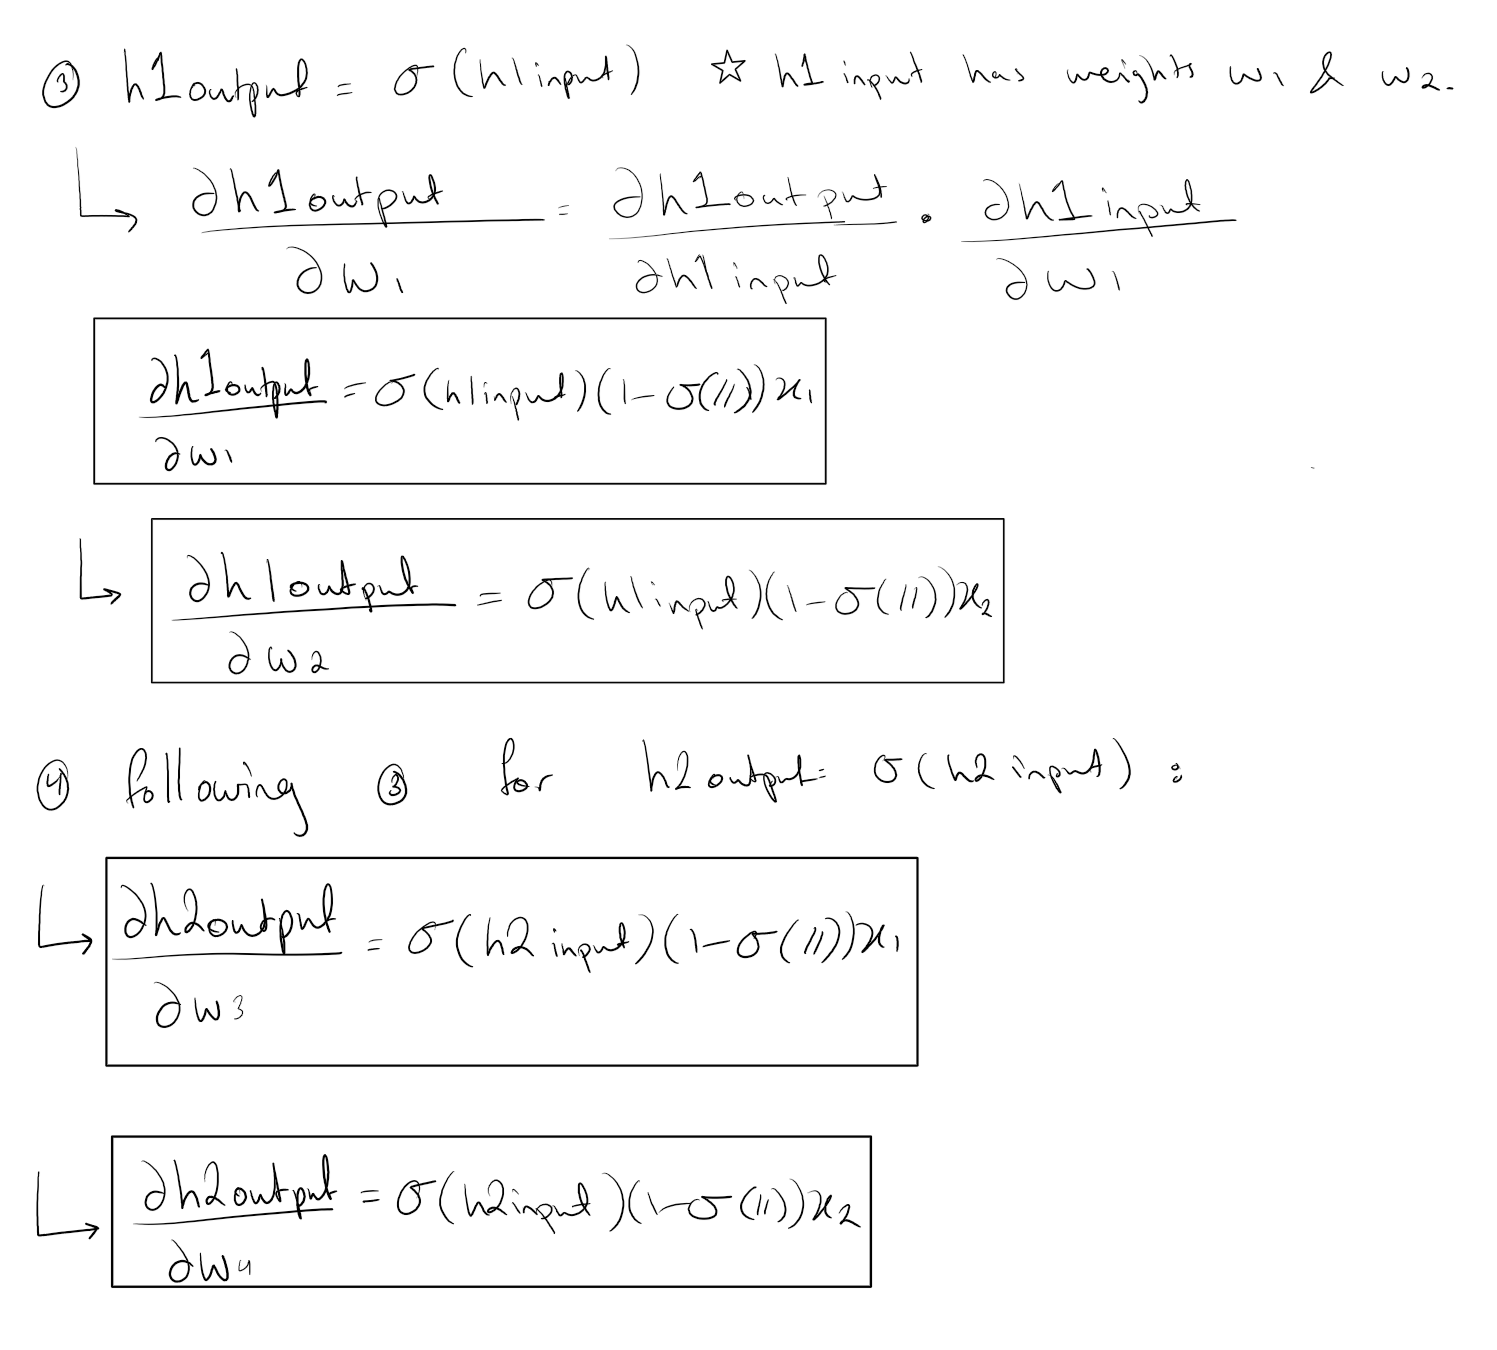 ③ h1output = σ(h1input) ☆ h1 input has weights w1 & w2.
↳ ∂h1output/∂w1 = ∂h1output/∂h1input · ∂h1input/∂w1
∂h1output/∂w1 = σ(h1input)(1-σ(//))x1
↳ ∂h1output/∂w2 = σ(h1input)(1-σ(//))x2
④ following ③ for h2output = σ(h2 input) :
↳ ∂h2output/∂w3 = σ(h2 input)(1-σ(//))x1
↳ ∂h2output/∂w4 = σ(h2input)(1-σ(//))x2